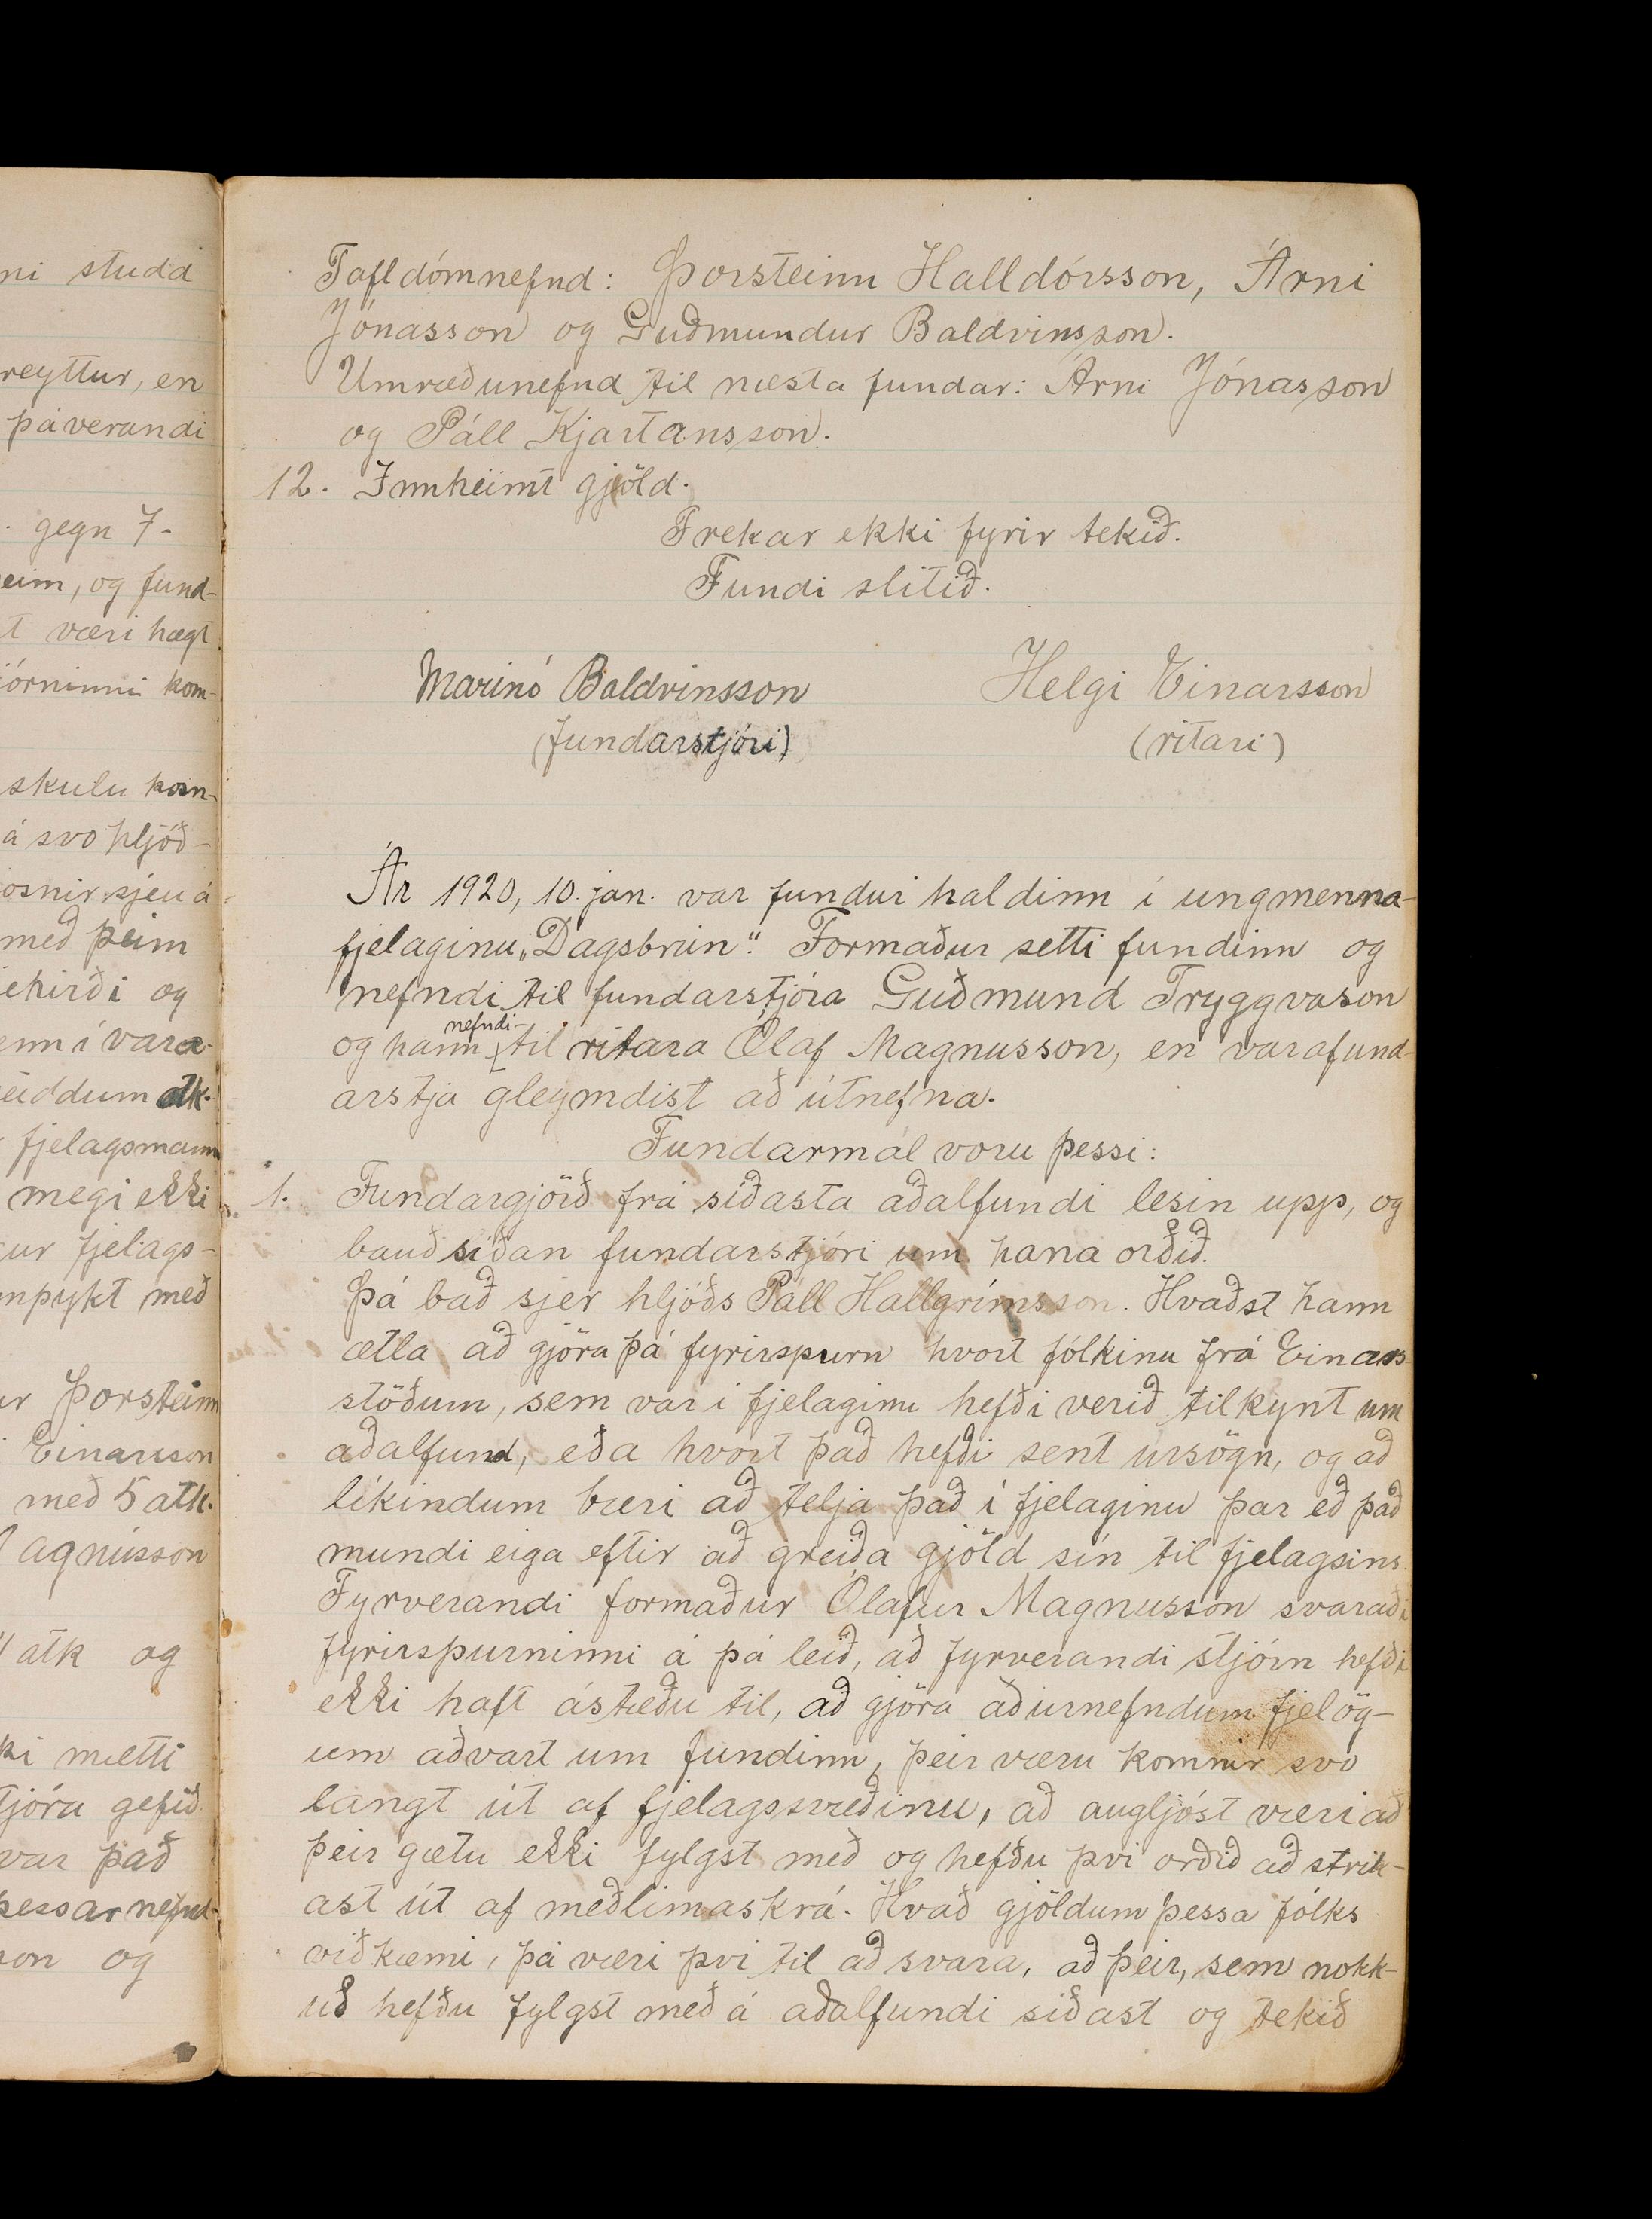 ni studd
reyttur, en
þáverandi
gegn 7.
eim, og fund-
t væri hægt
jórninni kom-
skulu kosn-
á svo hljóð-
osnir sjeu á
með þeim
ehirði og
enn í vara-
eiddum atk.
fjelagsmann
megi ekki
ur fjelags-
mþykt með
r Þorsteinn
Einarsson
með 5 atk.
agnússon
atk og
ki mætti
tjóra gefið
var það
þessar nefnd-
son og
Tafldómnefnd: Þorsteinn Halldórsson, Árni
Jónasson og Guðmundur Baldvinsson.
Umræðunefnd til næsta fundar: Árni Jónasson
og Páll Kjartansson.
12. Innheimt gjöld.
Frekar ekki fyrir tekið.
Fundi slitið.
Marinó Baldvinsson Helgi Einarsson
(fundarstjóri) (ritari)
Ár 1920, 10. jan. var fundur haldinn í ungmenna-
fjelaginu „Dagsbrún“. Formaður setti fundinn og
nefndi til fundarstjóra Guðmund Tryggvason
og hann nefndi til ritara Ólaf Magnusson, en varafund-
arstja gleymdist að útnefna.
Fundarmál voru þessi:
1. Fundargjörð frá síðasta aðalfundi lesin upp, og
bauð síðan fundarstjóri um hana orðið.
Þá bað sjer hljóðs Páll Hallgrímsson. Hvaðst hann
ætla að gjöra þá fyrirspurn hvort fólkinu frá Einars-
stöðum, sem var í fjelaginu hefði verið tilkynt um
aðalfund, eða hvort það hefði sent úrsögn, og að
líkindum bæri að telja það í fjelaginu þar eð það
mundi eiga eftir að greiða gjöld sín til fjelagsins.
Fyrverandi formaður Ólafur Magnusson svaraði
fyrirspurninni á þá leið, að fyrverandi stjórn hefði
ekki haft ástæðu til, að gjöra áðurnefndum fjelög-
um aðvart um fundinn, þeir væru komnir svo
langt út af fjelagssvæðinu, að augljóst væri að
þeir gætu ekki fylgst með og hefðu því orðið að strik-
ast út af meðlimaskrá. Hvað gjöldum þessa fólks
viðkæmi, þá væri því til að svara, að þeir, sem nokk-
uð hefðu fylgst með á aðalfundi síðast og tekið